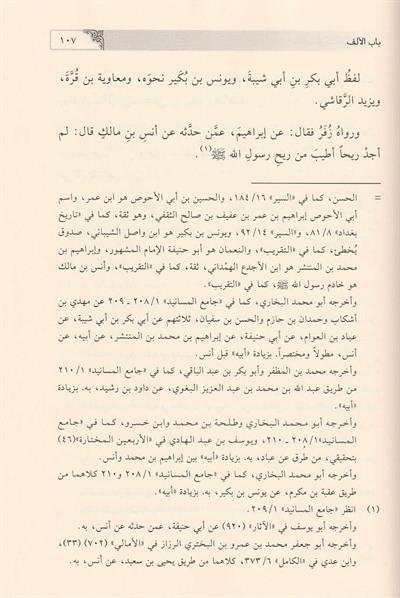 باب الألف
١٠٧
لفظُ أبي بكرِ بنِ أبي شيبةَ، ويونس بن بُكَير نحوَه، ومعاوية بن قُرَّةَ،
ويزيد الرَّقاشي.
ورواهُ زُفَرُ فقال: عن إبراهيمَ، عمَّن حدَّثه عن أنسِ بنِ مالكٍ قال: لم
أجدْ ريحاً أطيبَ من ريحِ رسولِ الله ﷺ(١).
= الحسن، كما في «السير» ١٦/ ١٨٤، والحسين بن أبي الأحوص هو ابن عمر، واسم
أبي الأحوص إبراهيم بن عمر بن عفيف بن صالح الثقفي، وهو ثقة، كما في «تاريخ
بغداد» ٨/ ٨١، و«السير» ١٤/ ٩٢، ويونس بن بكير هو ابن واصل الشيباني، صدوق
يُخطئ، كما في «التقريب»، والنعمان هو أبو حنيفة الإمام المشهور، وإبراهيم بن
محمد بن المنتشر هو ابن الأجدع الهمْداني، ثقة، كما في «التقريب»، وأنس بن مالك
هو خادم رسول الله ﷺ، كما في «التقريب».
وأخرجه أبو محمد البخاري، كما في «جامع المسانيد» ١/ ٢٠٨ ـ ٢٠٩ عن مهدي بن
أشكاب وحمدان بن حازم والحسن بن سفيان، ثلاثتهم عن أبي بكر بن أبي شيبة، عن
عباد بن العوام، عن أبي حنيفة، عن إبراهيم بن محمد بن المنتشر، عن أبيه، عن
أنس، مطولاً ومختصراً. بزيادة «أبيه» قبل أنس.
وأخرجه محمد بن المظفر وأبو بكر بن عبد الباقي، كما في «جامع المسانيد» ١/ ٢١٠
من طريق عبد الله بن محمد بن عبد العزيز البغوي، عن داود بن رشيد، به. بزيادة
«أبيه».
وأخرجه أبو محمد البخاري وطلحة بن محمد وابن خسرو، كما في «جامع
المسانيد» ١/ ٢٠٨ ـ ٢١٠، ويوسف بن عبد الهادي في «الأربعين المختارة» (٤٦)
بتحقيقي، من طرق عن عباد، به. بزيادة «أبيه» بين إبراهيم بن محمد وأنس.
وأخرجه أبو محمد البخاري، كما في «جامع المسانيد» ١/ ٢٠٨ و٢١٠ كلاهما من
طريق عقبة بن مكرم، عن يونس بن بكير، به. بزيادة «أبيه».
(١) انظر «جامع المسانيد» ١/ ٢٠٩.
وأخرجه أبو يوسف في «الآثار» (٩٢٠) عن أبي حنيفة، عمن حدثه عن أنس، به.
وأخرجه أبو جعفر محمد بن عمرو بن البختري الرزاز في «الأمالي» (٧٠٢) (٣٣)،
وابن عدي في «الكامل» ٦/ ٣٧٣، كلاهما من طريق يحيى بن سعيد، عن أنس، به.